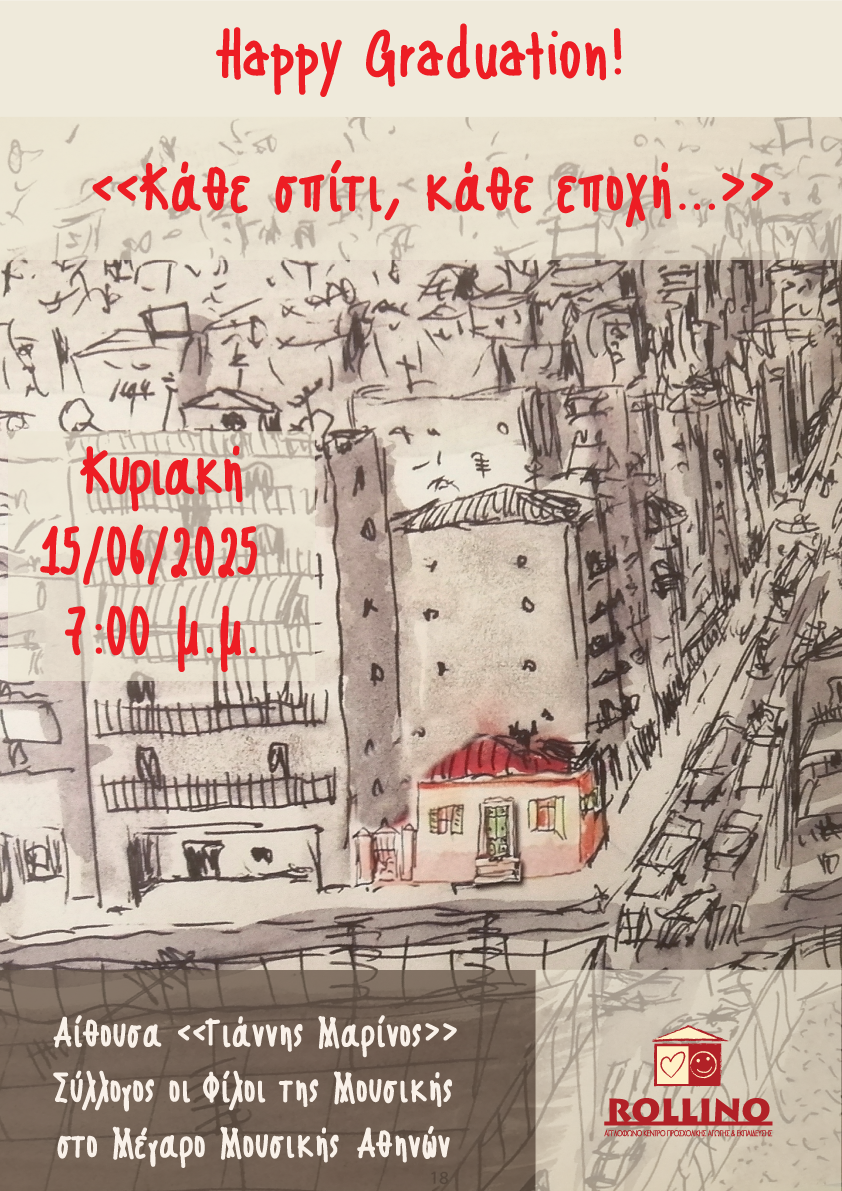 Happy Graduation!
<<Κάθε σπίτι, κάθε εποχή...>>
Κυριακή
15/06/2025
7:00 μ.μ.
Αίθουσα <<Γιάννης Μαρίνος>>
Σύλλογος οι Φίλοι της Μουσικής
στο Μέγαρο Μουσικής Αθηνών
ROLLINO
ΑΓΓΛΟΦΩΝΟ ΚΕΝΤΡΟ ΠΡΟΣΧΟΛΙΚΗΣ ΑΓΩΓΗΣ & ΕΚΠΑΙΔΕΥΣΗΣ
18